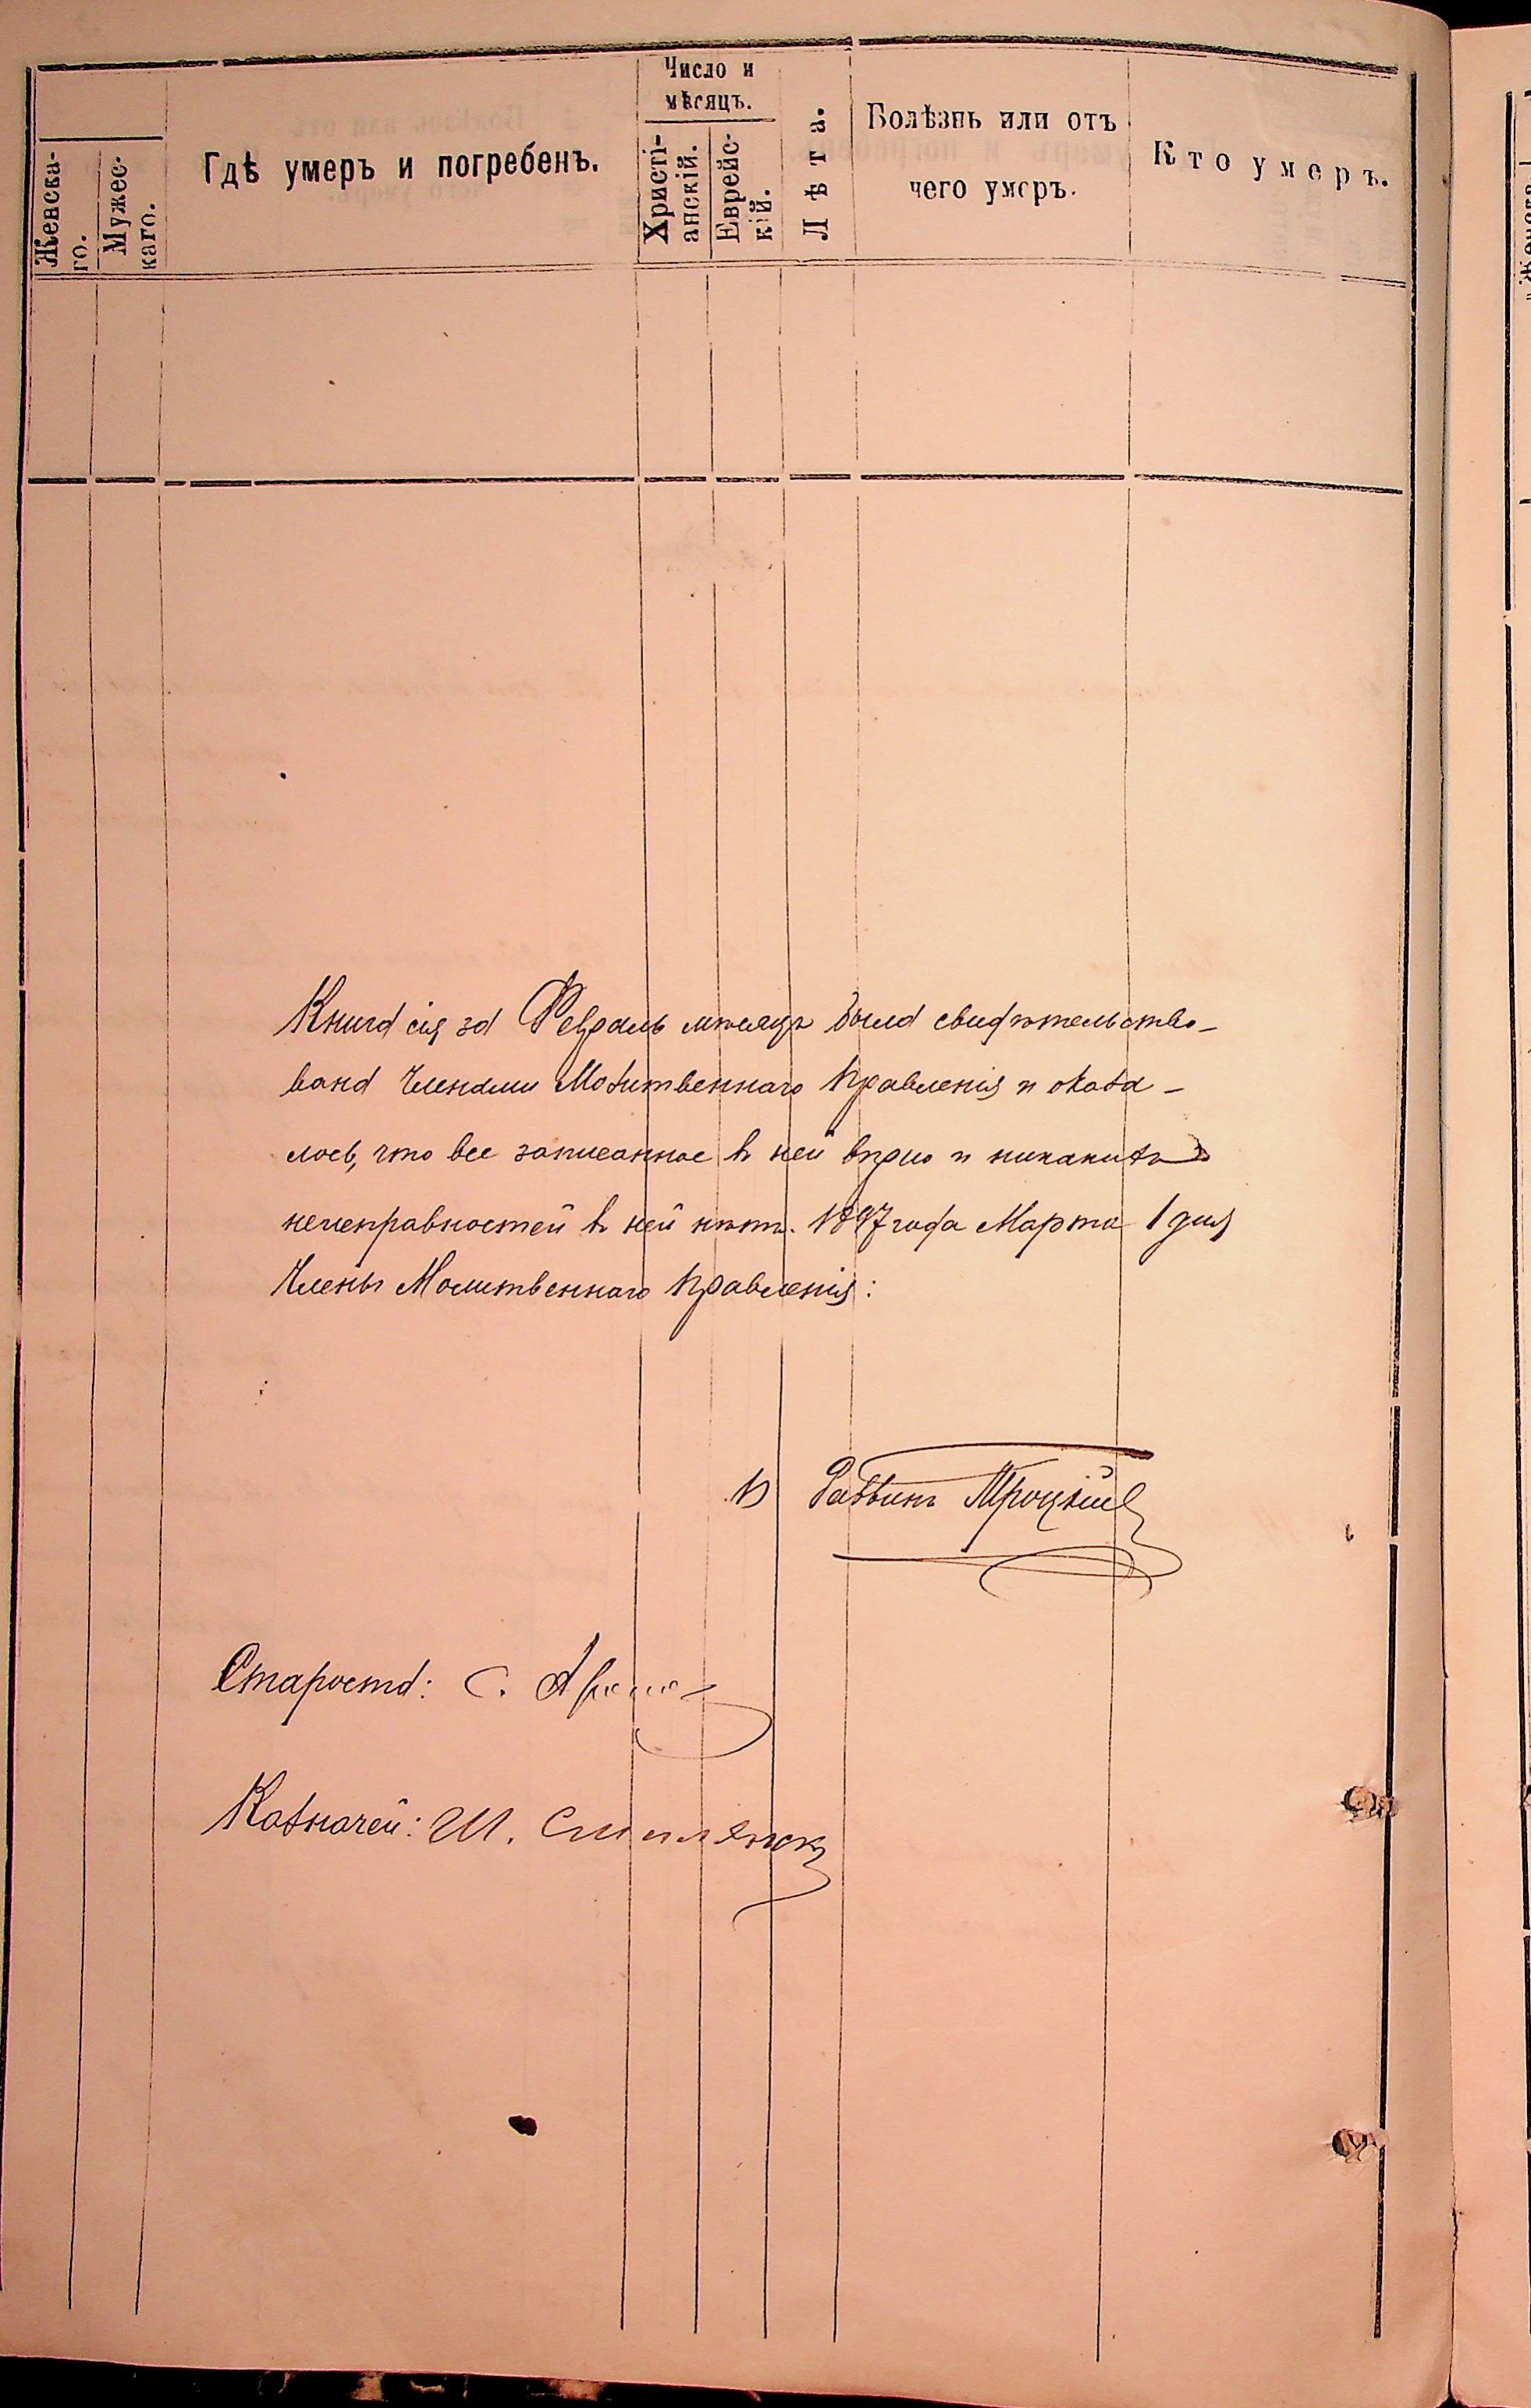 Женска-
го.
Мужес-
каго.
Гдѣ умеръ и погребенъ.
Число и
мѣсяцъ.
Христі-
анскій.
Еврейс-
кій.
Лѣта.
Болѣзнь или отъ
чего умеръ.
Кто умеръ.
Книга сія за Февраль мѣсяцъ была свидѣтельство-
вана Членами Молитвеннаго Правленія и оказа-
лось, что все записанное въ ней вѣрно и никакихъ
неисправностей въ ней нѣтъ. 1897 года Марта 1 дня
Члены Молитвеннаго Правленія:
Раввинъ Троцкій
Староста: С.
Казначей: Ш.